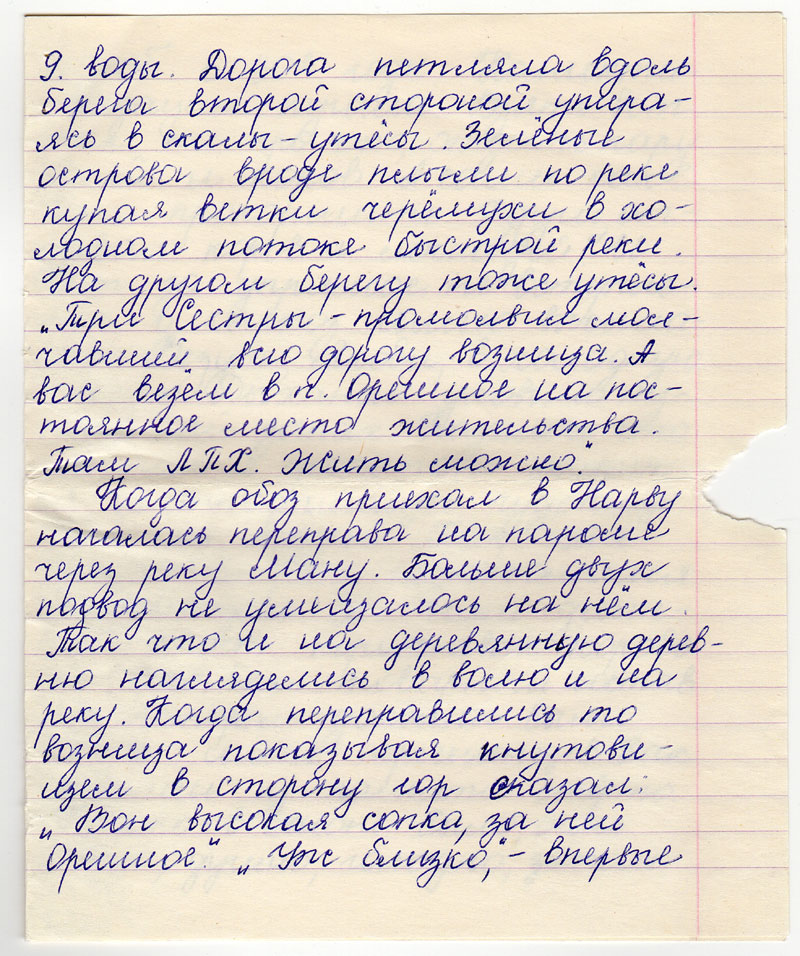 9. воды. Дорога петляла вдоль
берега второй стороной упира-
ясь в скалы - утёсы. Зелёные
острова вроде плыли по реке
купая ветки черёмухи в хо-
лодном потоке быстрой реки.
На другом берегу тоже утёсы.
„Три Сестры - промолвил мол-
чавший всю дорогу возница. А
вас везём в п. Орешное на пос-
тоянное место жительства.
Там ЛПХ. Жить можно."
Когда обоз приехал в Нарву
началась переправа на пароме
через реку Ману. Больше двух
подвод не умещалось на нём.
Так что и на деревянную дерев-
ню нагляделись в волю и на
реку. Когда переправились то
возница показывая кнутови-
щем в сторону гор сказал:
„Вон высокая сопка, за ней
Орешное." „Уж близко," - впервые